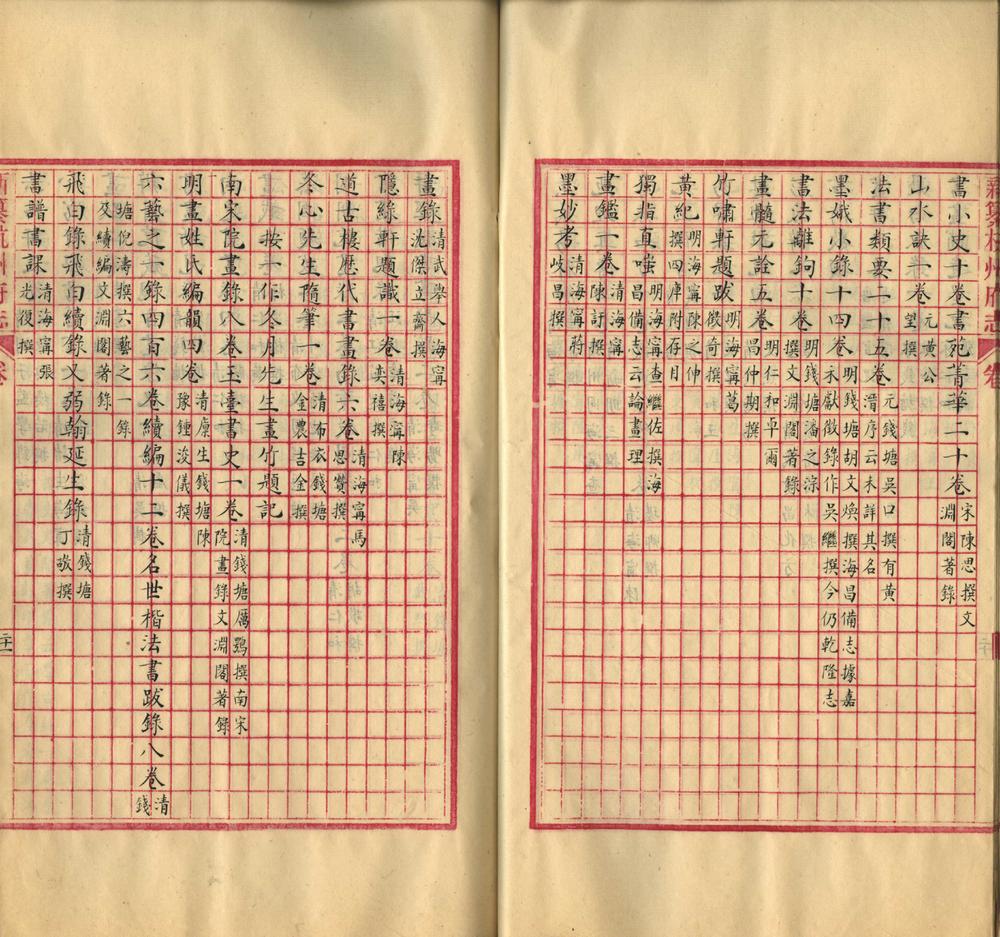 新纂杭州府志 卷
書小史十卷書苑菁華二十卷宋陳思撰文淵閣著錄
山水訣一卷元黃公望撰
法書類要二十五卷元錢塘吳口撰有黃溍序云未詳其名
墨娥小錄十四卷明錢塘胡文煥撰海昌備志據嘉禾獻徵錄作吳繼撰今仍乾隆志
書法離鉤十卷明錢塘潘之淙撰文淵閣著錄
畫髓元詮五卷明仁和卓爾昌仲期撰
竹嘯軒題跋明海寧葛徵奇撰
黃紀明海寧陳之伸撰四庫附存目
獨指直嗤明海寧查繼佐撰海昌備志云論畫理
畫鑑一卷清海寧陳訏撰
墨妙考清海寧蔣岐昌撰
畫錄清武舉人海寧沈傑立齋撰
隱綠軒題識一卷清海寧陳奕禧撰
道古樓歷代書畫錄六卷清海寧馬思贊撰
冬心先生隨筆一卷清布衣錢塘金農吉金撰
按一作冬月先生畫竹題記
南宋院畫錄八卷玉臺書史一卷清錢塘厲鶚撰南宋院畫錄文淵閣著錄
明畫姓氏編韻四卷清廩生錢塘陳豫鍾浚儀撰
六藝之一錄四百六卷續編十二卷名世楷法書跋錄八卷清錢
塘倪濤撰六藝之一錄及續編文淵閣著錄
飛白錄飛白續錄又弱翰延生錄清錢塘丁敬撰
書譜書課清海寧張光復撰